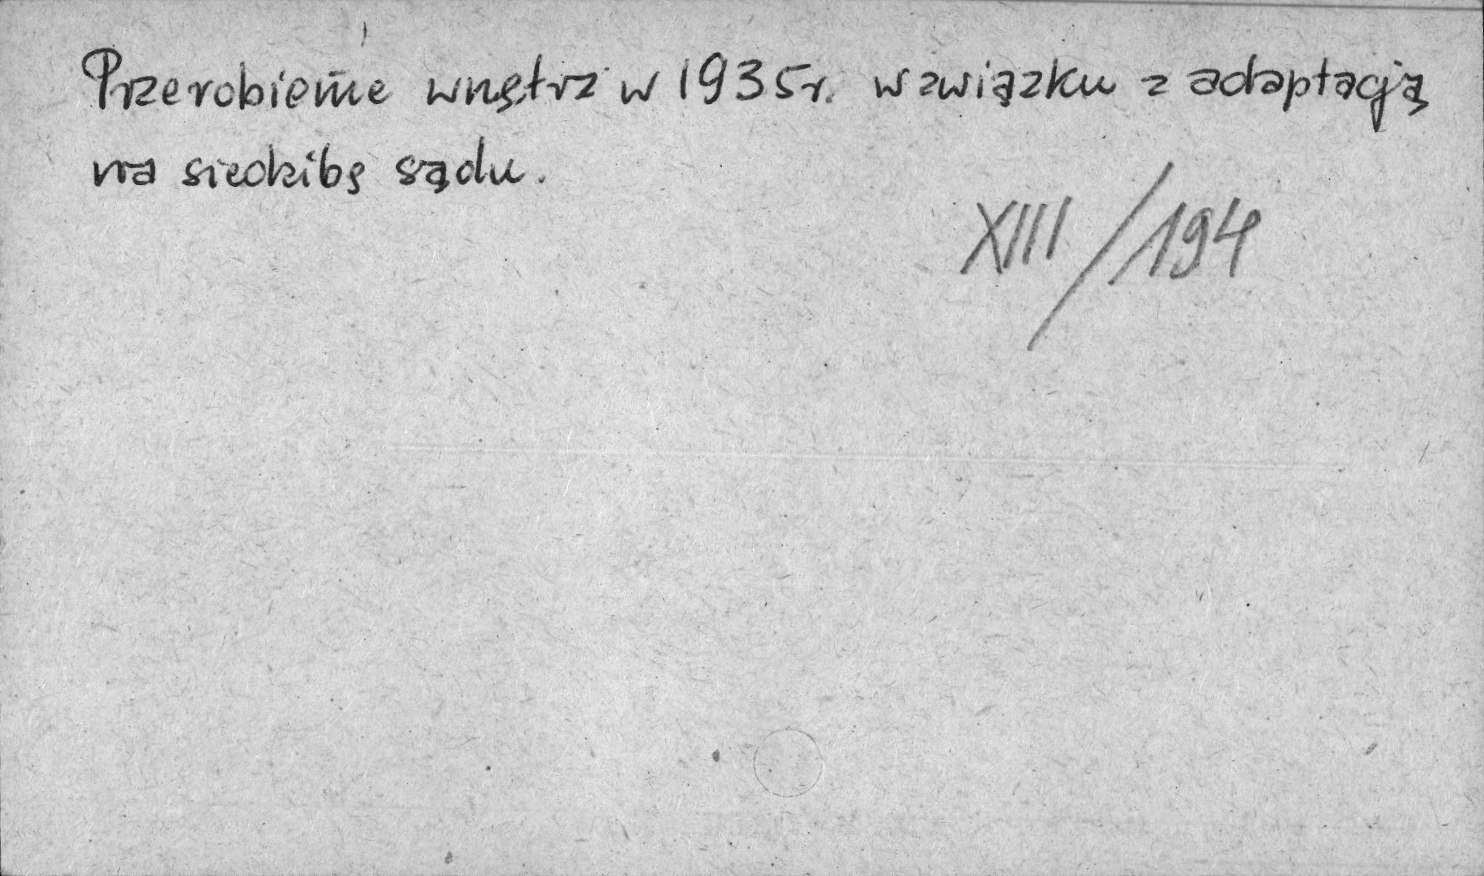 Przerobienie wnętrz w 1935r. w związku z adaptacją
na siedzibę sądu.
XIII/194